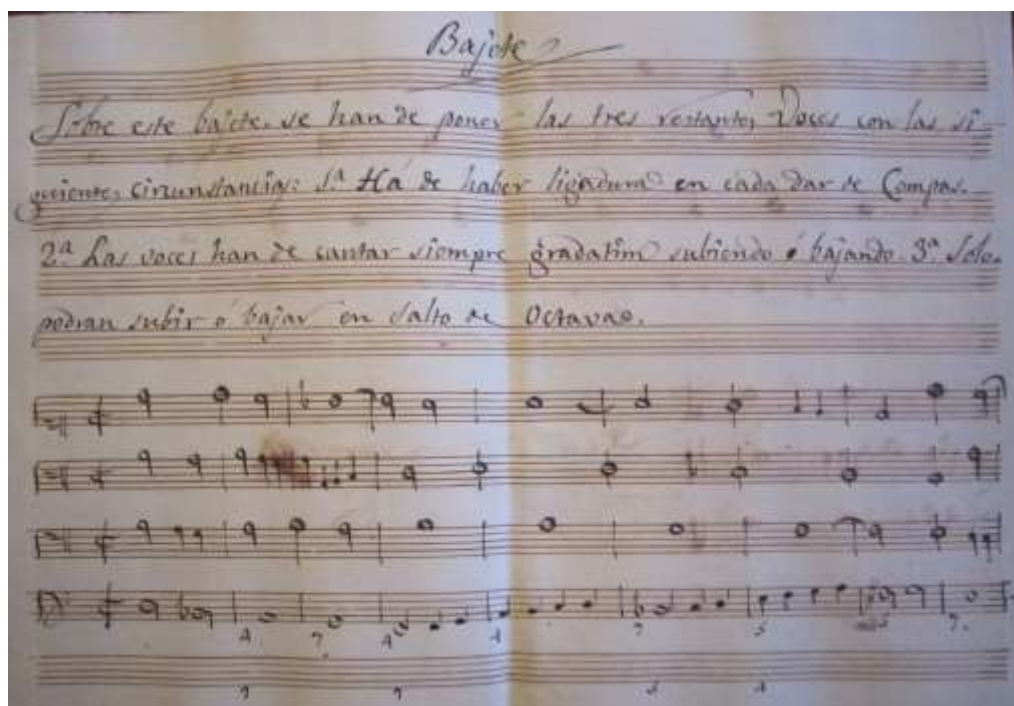 Bajete
Sobre este bajete, se han de poner las tres restantes Voces con las si-
guientes cirunstancias: 1.ª Ha de haber ligadura en cada dar de Compas.
2.ª Las voces han de cantar siempre gradatim subiendo ó bajando 3.ª Solo
podran subir ó bajar en salto de Octavas.